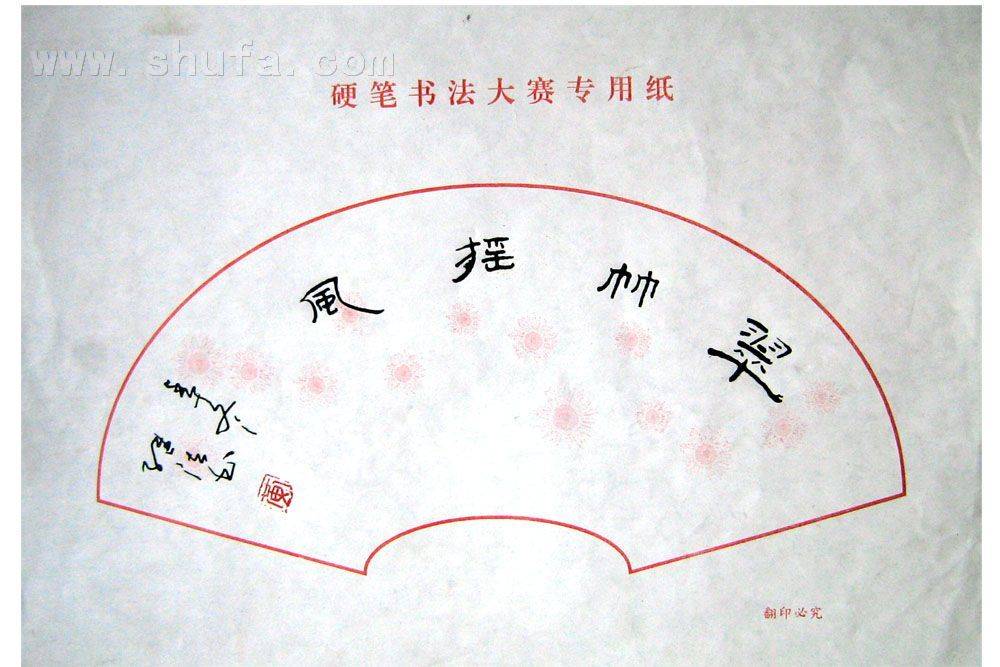 www.shufa.com
硬笔书法大赛专用纸
翠竹摇風
翻印必究